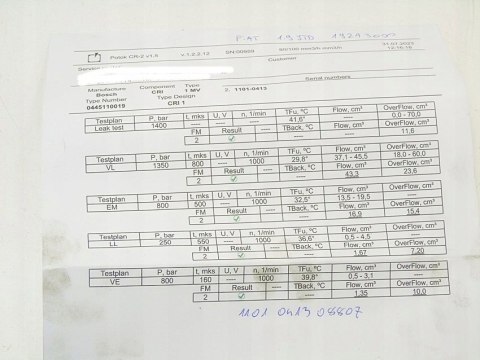 FIAT 1.9 JTD
Potok CR-2 v1.5 v.1.2.2.12 SN:00909 31.07.2023
Customer
Serial numbers
Manufacture Component Type 2. 1101-0413
Bosch CRI 1 MV
Type Number Type Design
0445110019 CRI 1
Testplan P, bar t, mks U, V n, 1/min TFu, ºC Flow, cm³ OverFlow, cm³
Leak test 1400 ---- ---- ---- 41,6° ---- 0,0 - 70,0
FM Result TBack, ºC Flow, cm³ OverFlow, cm³
2 ---- ---- 11,6
Testplan P, bar t, mks U, V n, 1/min TFu, ºC Flow, cm³ OverFlow, cm³
VL 1350 800 ---- 1000 29,8° 37,1 - 45,5 18,0 - 60,0
FM Result TBack, ºC Flow, cm³ OverFlow, cm³
2 ---- 43,3 23,6
Testplan P, bar t, mks U, V n, 1/min TFu, ºC Flow, cm³ OverFlow, cm³
EM 800 500 ---- 1000 32,5° 13,5 - 19,5 ----
FM Result TBack, ºC Flow, cm³ OverFlow, cm³
2 ---- 16,9 15,4
Testplan P, bar t, mks U, V n, 1/min TFu, ºC Flow, cm³ OverFlow, cm³
LL 250 550 ---- 1000 36,6° 0,5 - 4,5 ----
FM Result TBack, ºC Flow, cm³ OverFlow, cm³
2 ---- 1,67 7,20
Testplan P, bar t, mks U, V n, 1/min TFu, ºC Flow, cm³ OverFlow, cm³
VE 800 160 ---- 1000 39,8° 0,5 - 3,1 ----
FM Result TBack, ºC Flow, cm³ OverFlow, cm³
2 ---- 1,35 10,0
1101 0413 08807